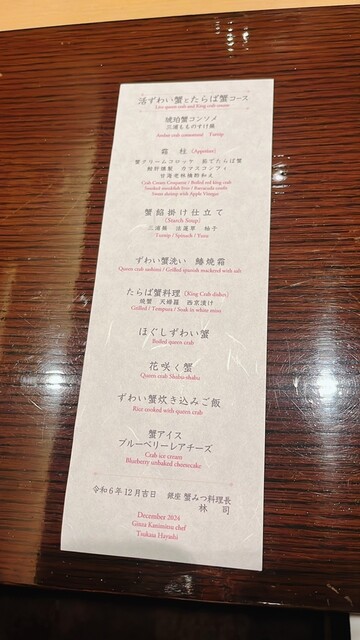 活ずわい蟹とたらば蟹コース
Live queen crab and King crab course
琥珀蟹コンソメ
三浦もものすけ蕪
Amber crab consommé Turnip
霜柱 (Appetizer)
蟹クリームコロッケ 茹でたらば蟹
Crab Cream Croquette / Boiled red king crab
Smoked swordfish
Sweet shrimp with Apple Vinegar
蟹餡掛け仕立て
(Starch Soup)
三浦蕪 法蓮草 柚子
Turnip / Spinach / Yuzu
ずわい蟹洗い 鰆焼霜
Queen crab sashimi / Grilled spanish mackerel with salt
たらば蟹料理 (King Crab dishes)
焼蟹 天婦羅 西京漬け
Grilled / Tempura / Soak in white miso
ほぐしずわい蟹
Boiled queen crab
花咲く蟹
Queen crab Shabu-shabu
ずわい蟹炊き込みご飯
Rice cooked with queen crab
蟹アイス
ブルーベリーレアチーズ
Crab ice cream
Blueberry unbaked cheesecake
令和6年12月吉日 銀座 蟹みつ料理長
林 司
December 2024
Ginza Kanimitsu chef
Tsukasa Hayashi